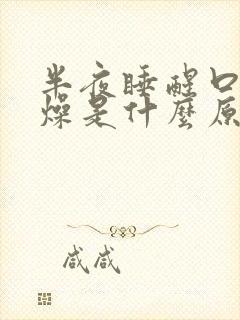 半夜睡醒口
燥是什麼原
咸咸